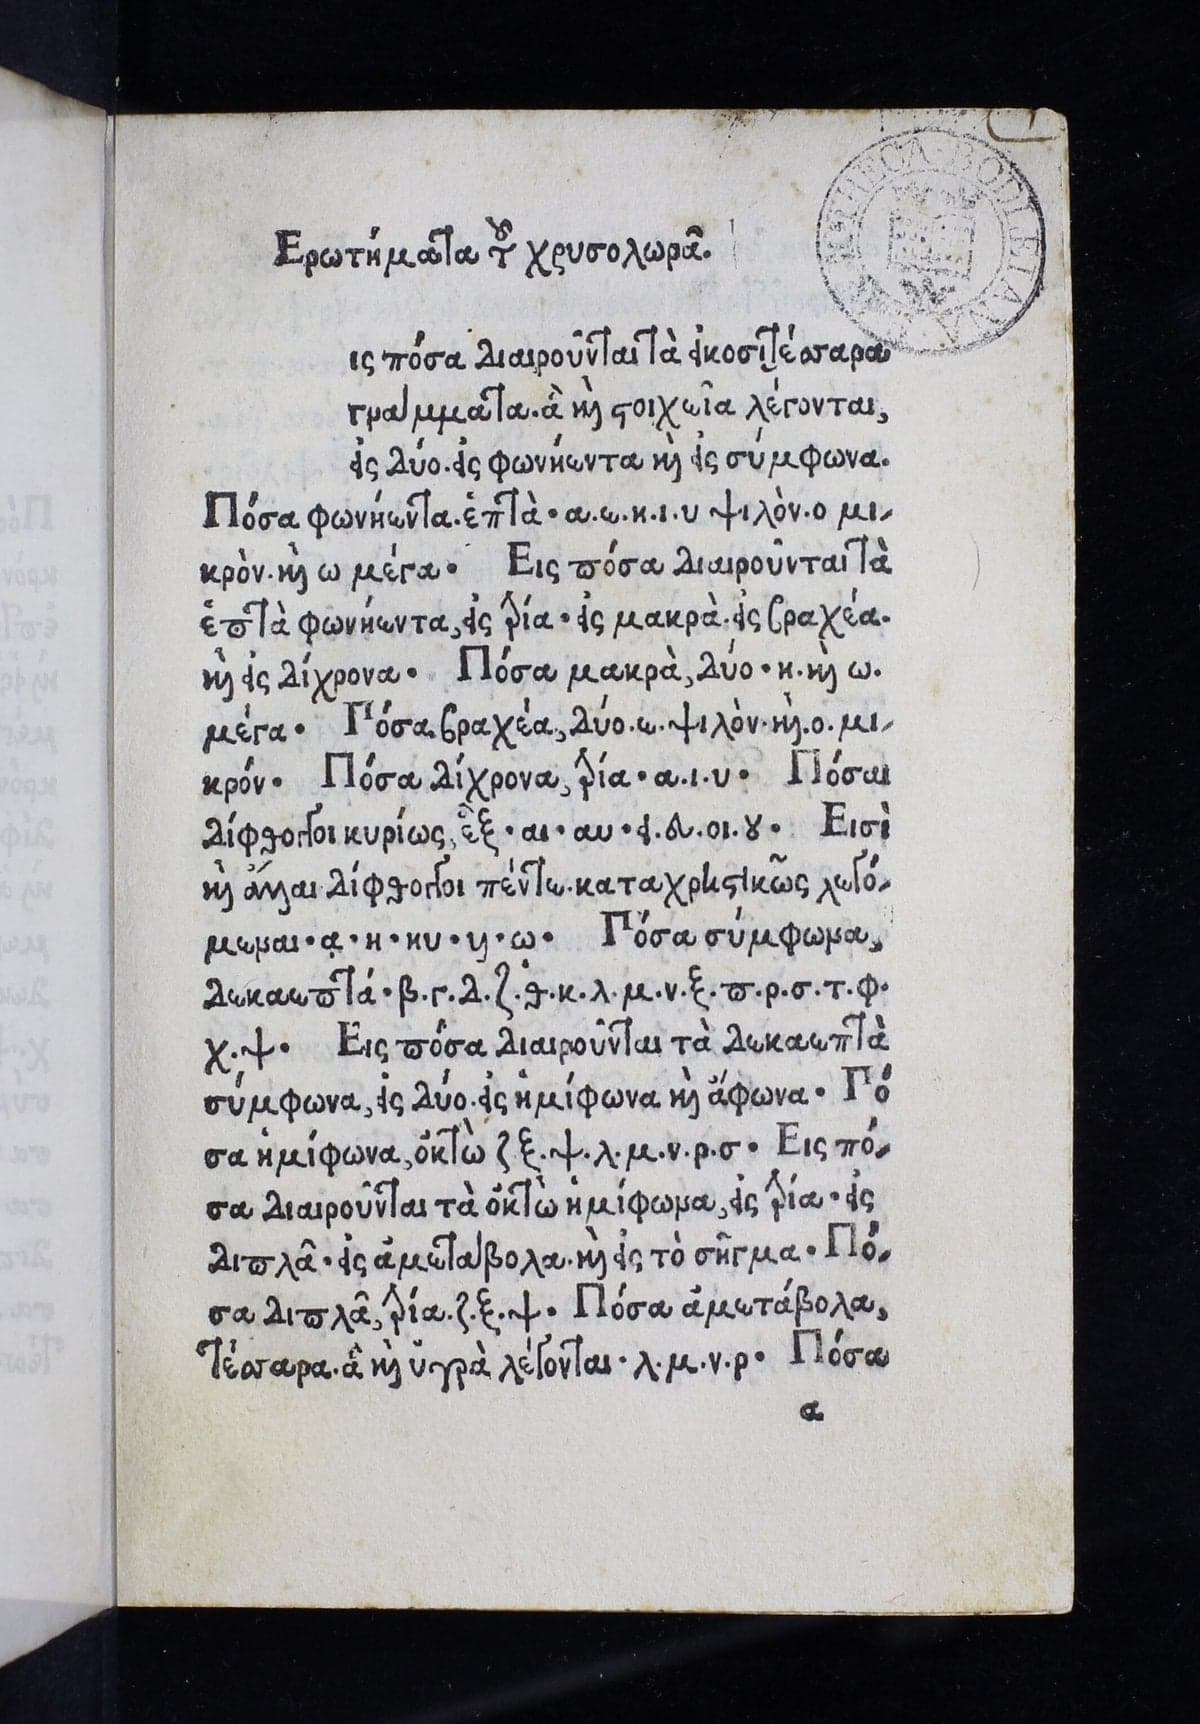 BIBLIOTHECA·BODLEIANA
Ἐρωτήματα τοῦ χρυσολωρᾶ.
ις πόσα διαιροῦνται τὰ εἰκοσιτέσσαρα
γράμματα. ἃ καὶ στοιχεῖα λέγονται,
εἰς δύο. εἰς φωνήεντα καὶ εἰς σύμφωνα.
Πόσα φωνήεντα. ἑπτὰ · α. ε. η. ι. υ ψιλὸν. ο μι-
κρὸν. καὶ ω μέγα · Εἰς πόσα διαιροῦνται τὰ
ἑπτὰ φωνήεντα, εἰς τρία · εἰς μακρὰ. εἰς βραχέα.
καὶ εἰς δίχρονα · Πόσα μακρὰ, δύο · η. καὶ ω.
μέγα · Πόσα βραχέα, δύο. ε. ψιλὸν. καὶ. ο. μι-
κρόν · Πόσα δίχρονα, τρία · α. ι. υ · Πόσαι
δίφθογγοι κυρίως, ἓξ · αι · αυ · ει. ευ. οι. ου · Εἰσὶ
καὶ ἄλλαι δίφθογγοι πέντε. καταχρηστικῶς λεγό-
μεναι · ᾳ · ῃ · ηυ · υι · ῳ · Πόσα σύμφωνα,
δεκαεπτά · β. γ. δ. ζ. θ. κ. λ. μ. ν. ξ. π. ρ. σ. τ. φ.
χ. ψ · Εἰς πόσα διαιροῦνται τὰ δεκαεπτὰ
σύμφωνα, εἰς δύο. εἰς ἡμίφωνα καὶ ἄφωνα · Πό
σα ἡμίφωνα, ὀκτὼ ζ ξ. ψ. λ. μ. ν. ρ. σ · Εἰς πό-
σα διαιροῦνται τὰ ὀκτὼ ἡμίφωνα, εἰς τρία · εἰς
διπλᾶ · εἰς ἀμετάβολα. καὶ εἰς τὸ σῆγμα · Πό-
σα διπλᾶ, τρία. ζ. ξ. ψ · Πόσα ἀμετάβολα,
τέσσαρα. ἃ καὶ ὑγρὰ λέγονται · λ. μ. ν. ρ · Πόσα
α